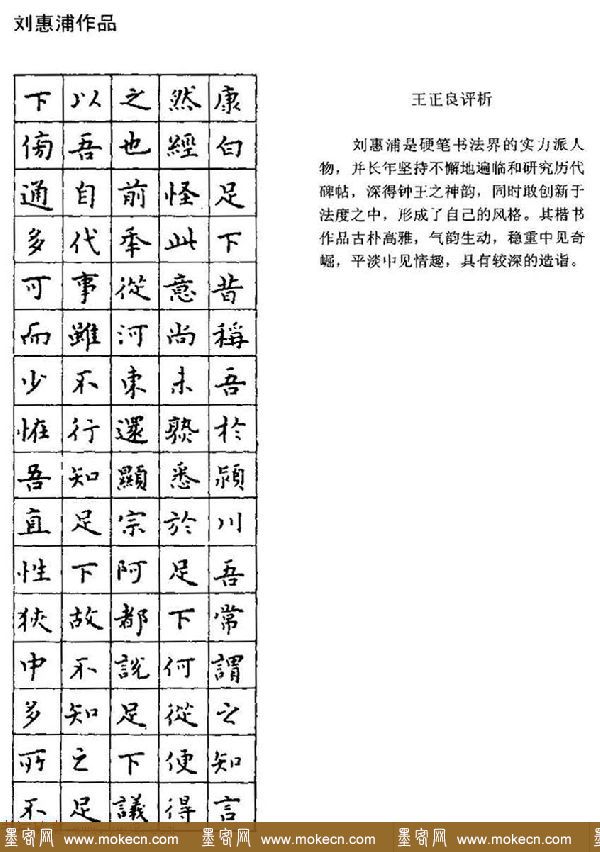 刘惠浦作品
康白足下昔稱吾於潁川吾常謂之知言
然經怪此意尚未熟悉於足下何從便得
之也前秊從河東還顯宗阿都說足下議
以吾自代事雖不行知足下故不知之足
下傍通多可而少恠吾直性狹中多所不
王正良评析
刘惠浦是硬笔书法界的实力派人
物，并长年坚持不懈地遍临和研究历代
碑帖，深得钟王之神韵，同时敢创新于
法度之中，形成了自己的风格。其楷书
作品古朴高雅，气韵生动，稳重中见奇
崛，平淡中见情趣，具有较深的造诣。
墨客网 www.mokecn.com 墨客网 www.mokecn.com 墨客网 www.mokecn.com